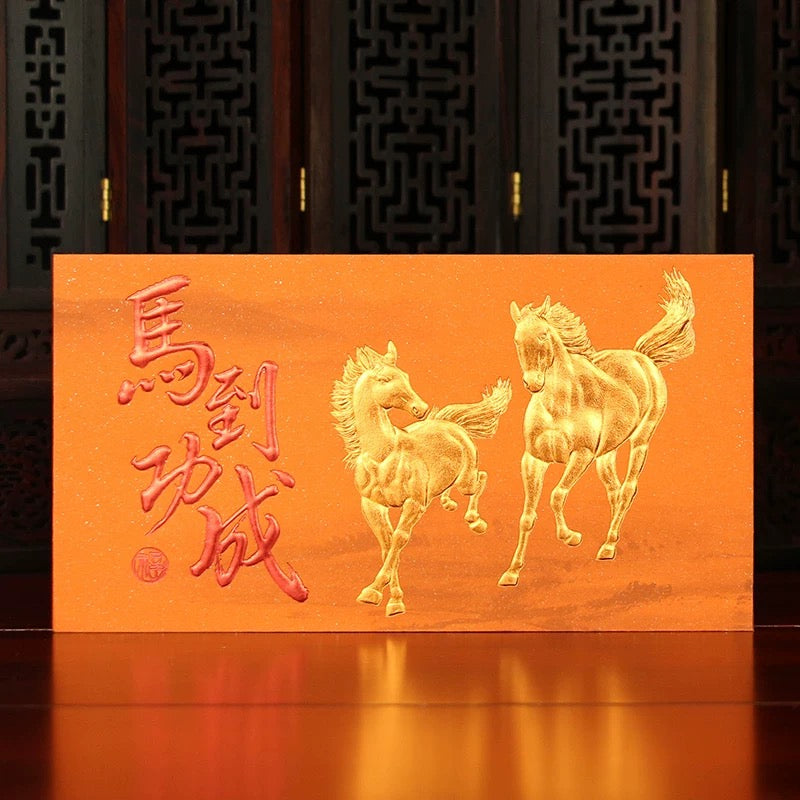 馬到
功成
福